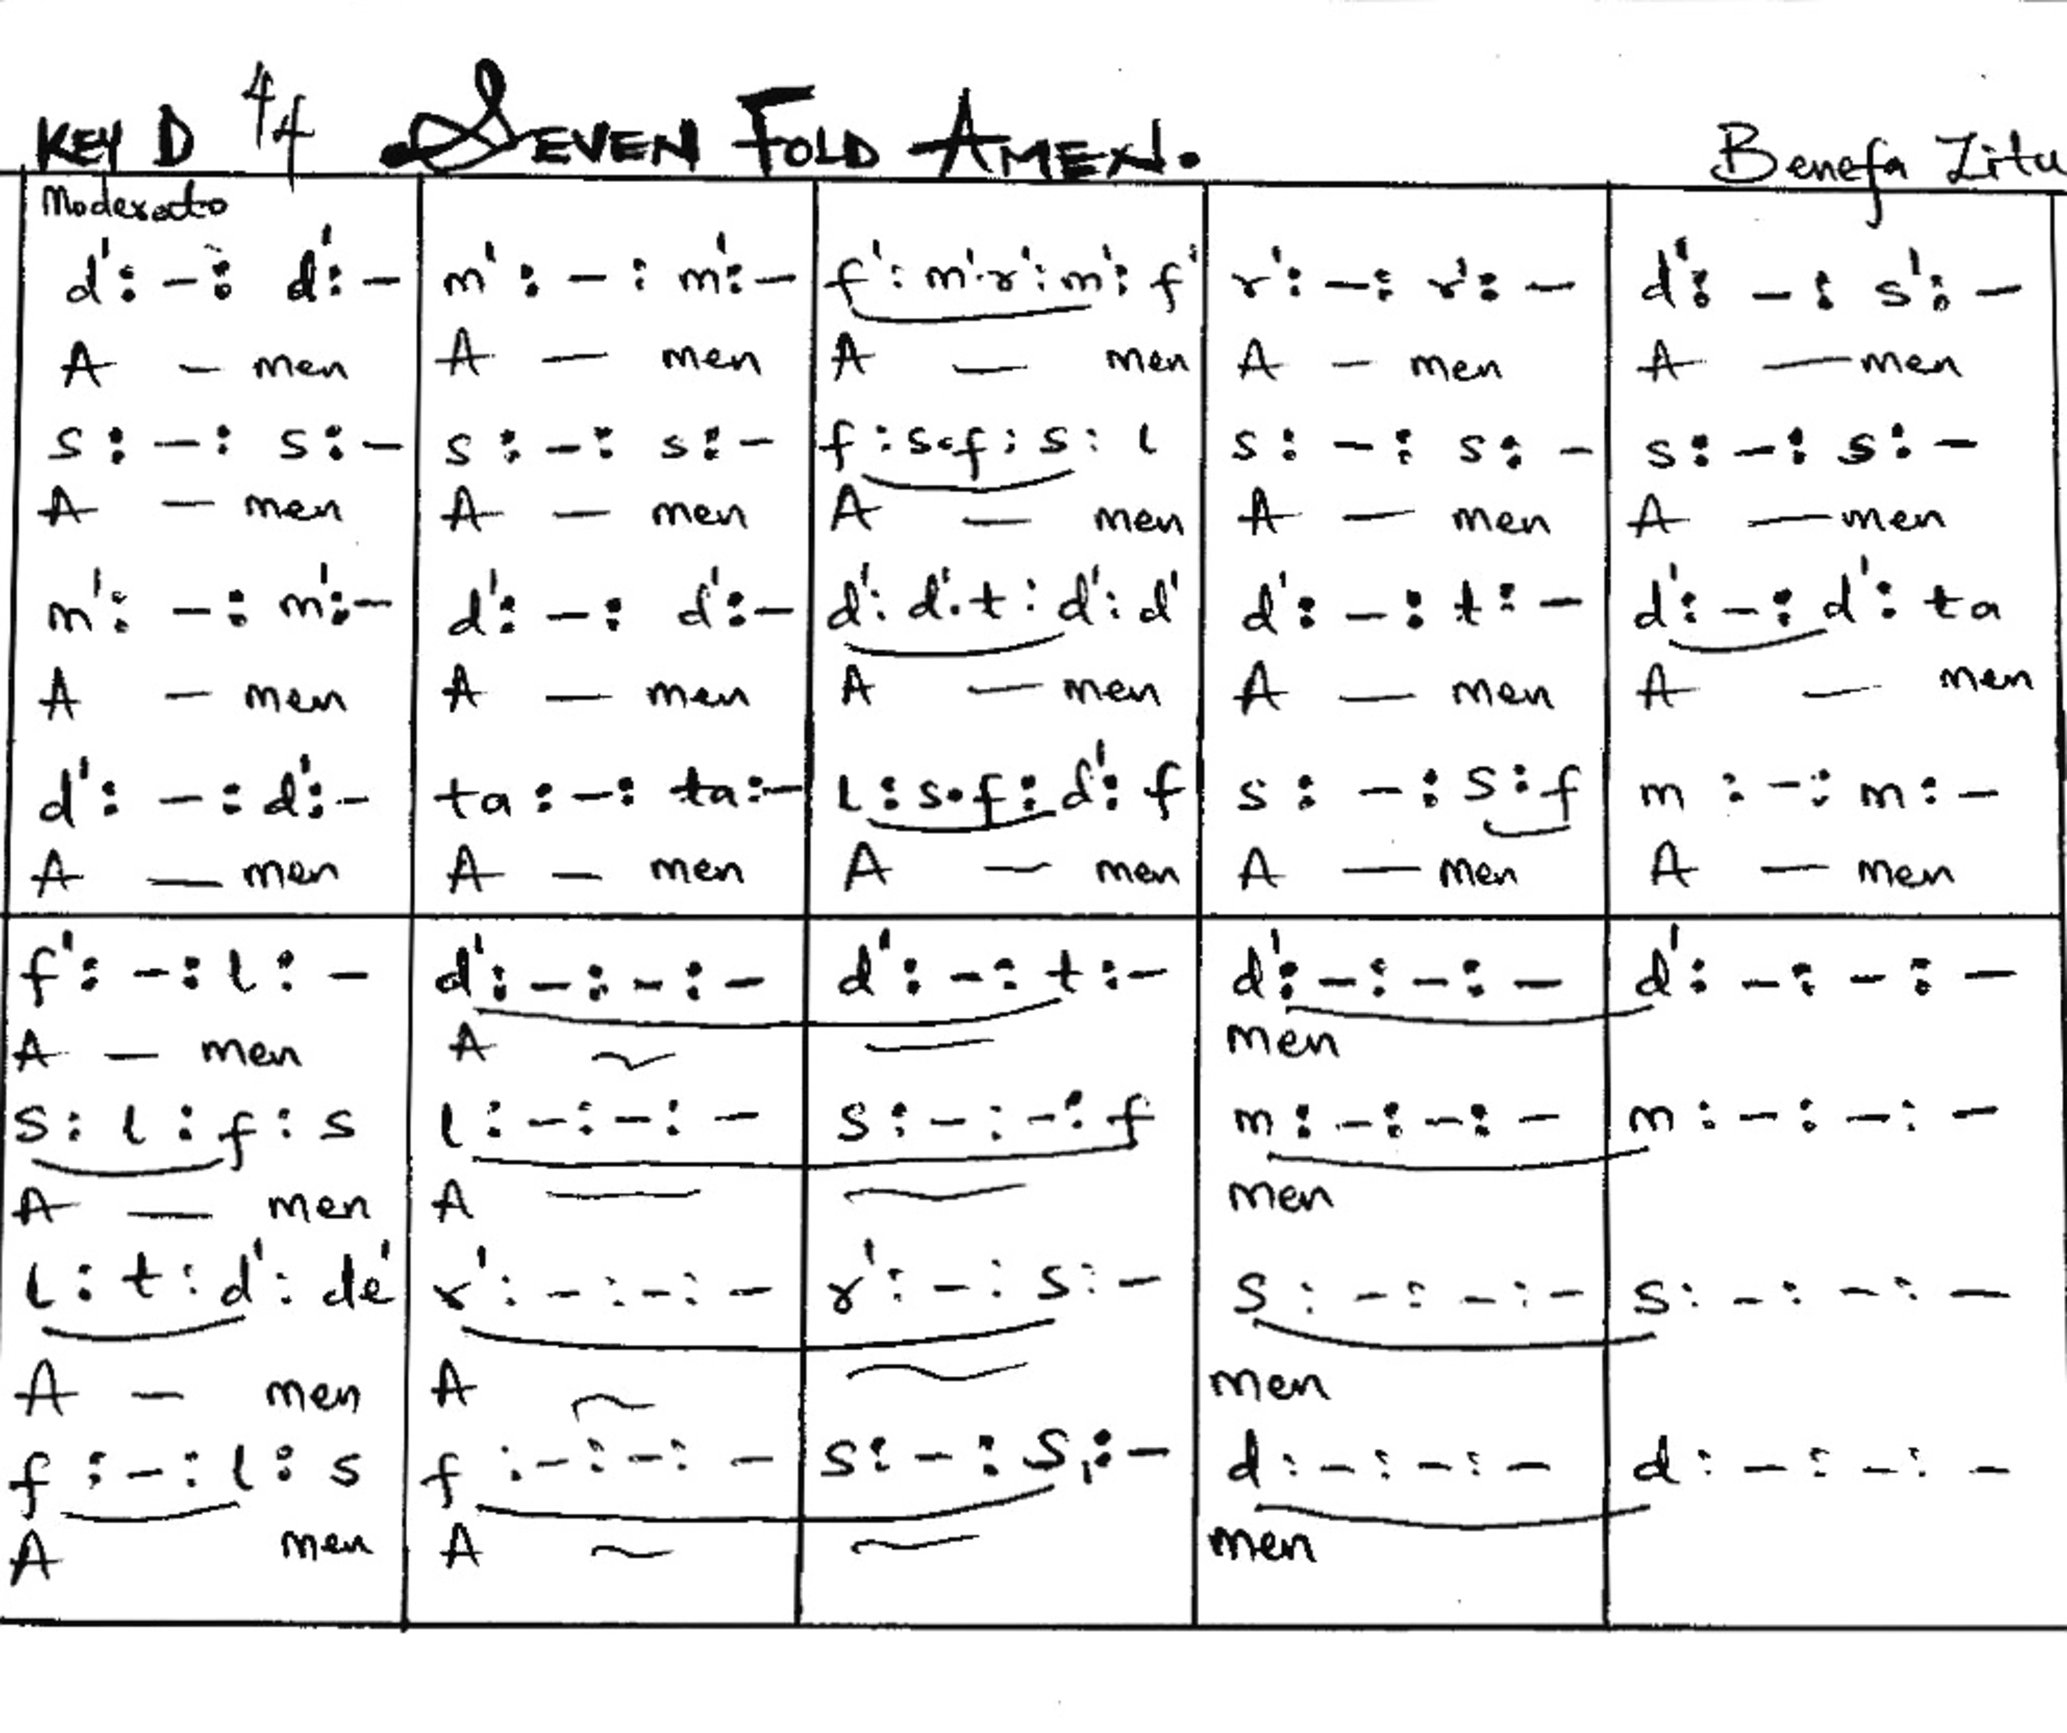 KEY D 4/4 SEVEN FOLD AMEN. Benefa Zitu
Moderato
d':-:d':- m':-:m':- f':m'.r':m':f' r':-:r':- d':-:s':-
A - men A - men A - men A - men A - men
s:-:s:- s:-:s:- f:s.f:s:l s:-:s:- s:-:s:-
A - men A - men A - men A - men A - men
m':-:m':- d':-:d':- d':d'.t:d':d' d':-:t:- d':-:d':ta
A - men A - men A - men A - men A - men
d':-:d':- ta:-:ta:- l:s.f:d':f s:-:s:f m:-:m:-
A - men A - men A - men A - men A - men
f':-:l:- d':-:-:- d':-:t:- d':-:-:- d':-:-:-
A - men A men
s:l:f:s l:-:-:- s:-:-:f m:-:-:- m:-:-:-
A - men A men
l:t:d':de' r':-:-:- r':-:s:- s:-:-:- s:-:-:-
A - men A men
f:-:l:s f:-:-:- s:-:s,:- d:-:-:- d:-:-:-
A men A men